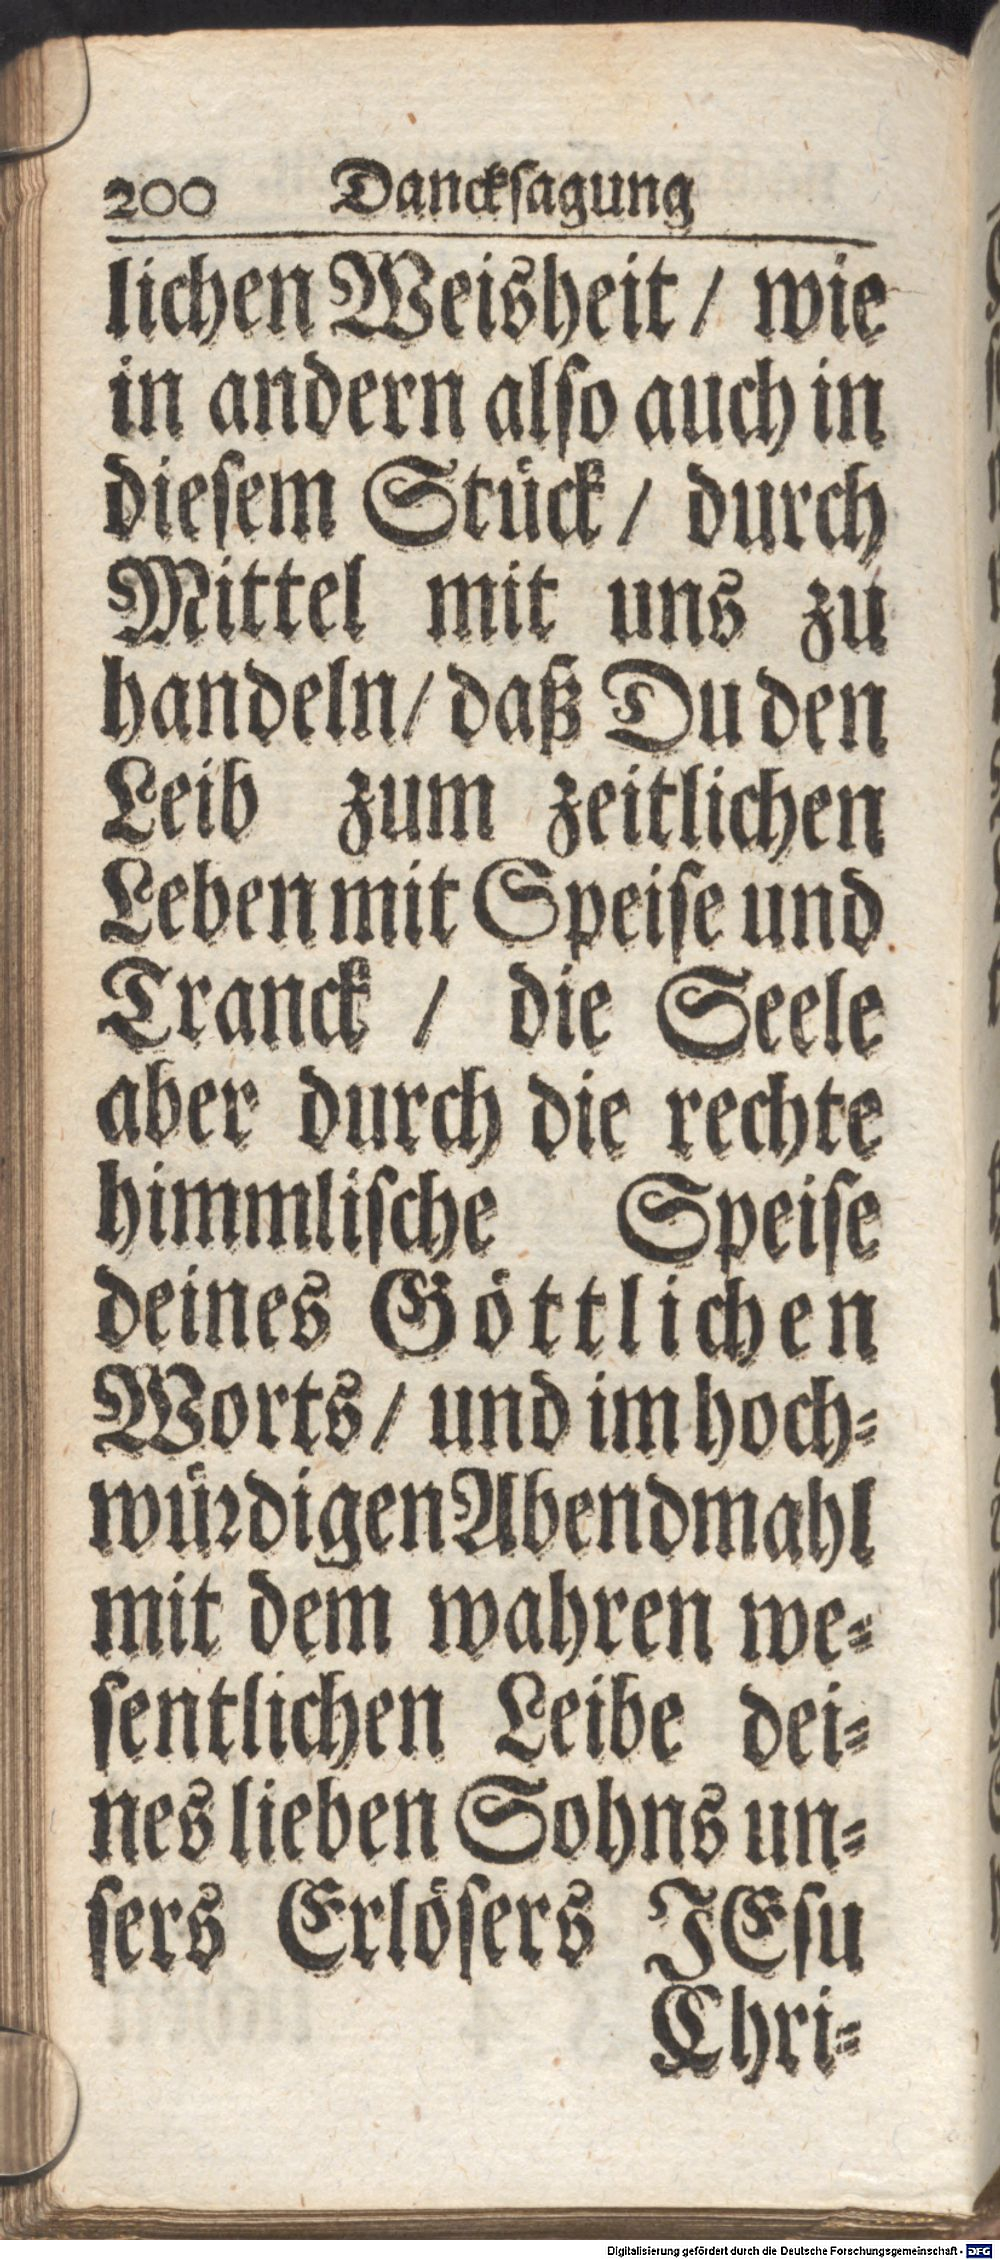 200 Danckſagung
lichen Weisheit / wie
in andern alſo auch in
dieſem Stück / durch
Mittel mit uns zu
handeln / daß Du den
Leib zum zeitlichen
Leben mit Speiſe und
Tranck / die Seele
aber durch die rechte
himmliſche Speiſe
deines Göttlichen
Worts / und im hoch⸗
wüꝛdigen Abendmahl
mit dem wahren we⸗
ſentlichen Leibe dei⸗
nes lieben Sohns un⸗
ſers Erlöſers JEſu
Chri⸗
Digitalisierung gefördert durch die Deutsche Forschungsgemeinschaft - DFG